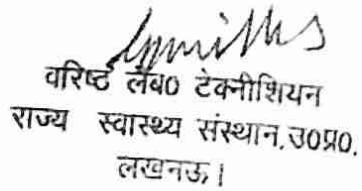 वरिष्ठ लैब० टेक्नीशियन
राज्य स्वास्थ्य संस्थान, उ०प्र०.
लखनऊ।